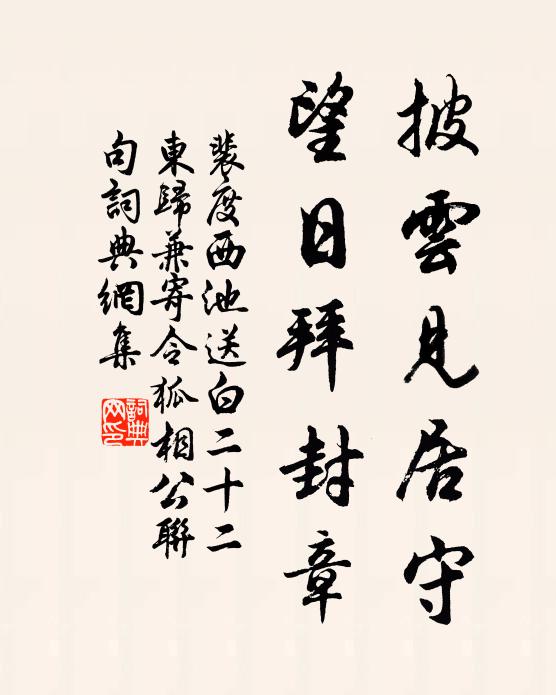 披雲見居守
望日拜封章
裴度西池送白二十二
東歸兼寄令狐相公聯
句詞典網集
詞典網印